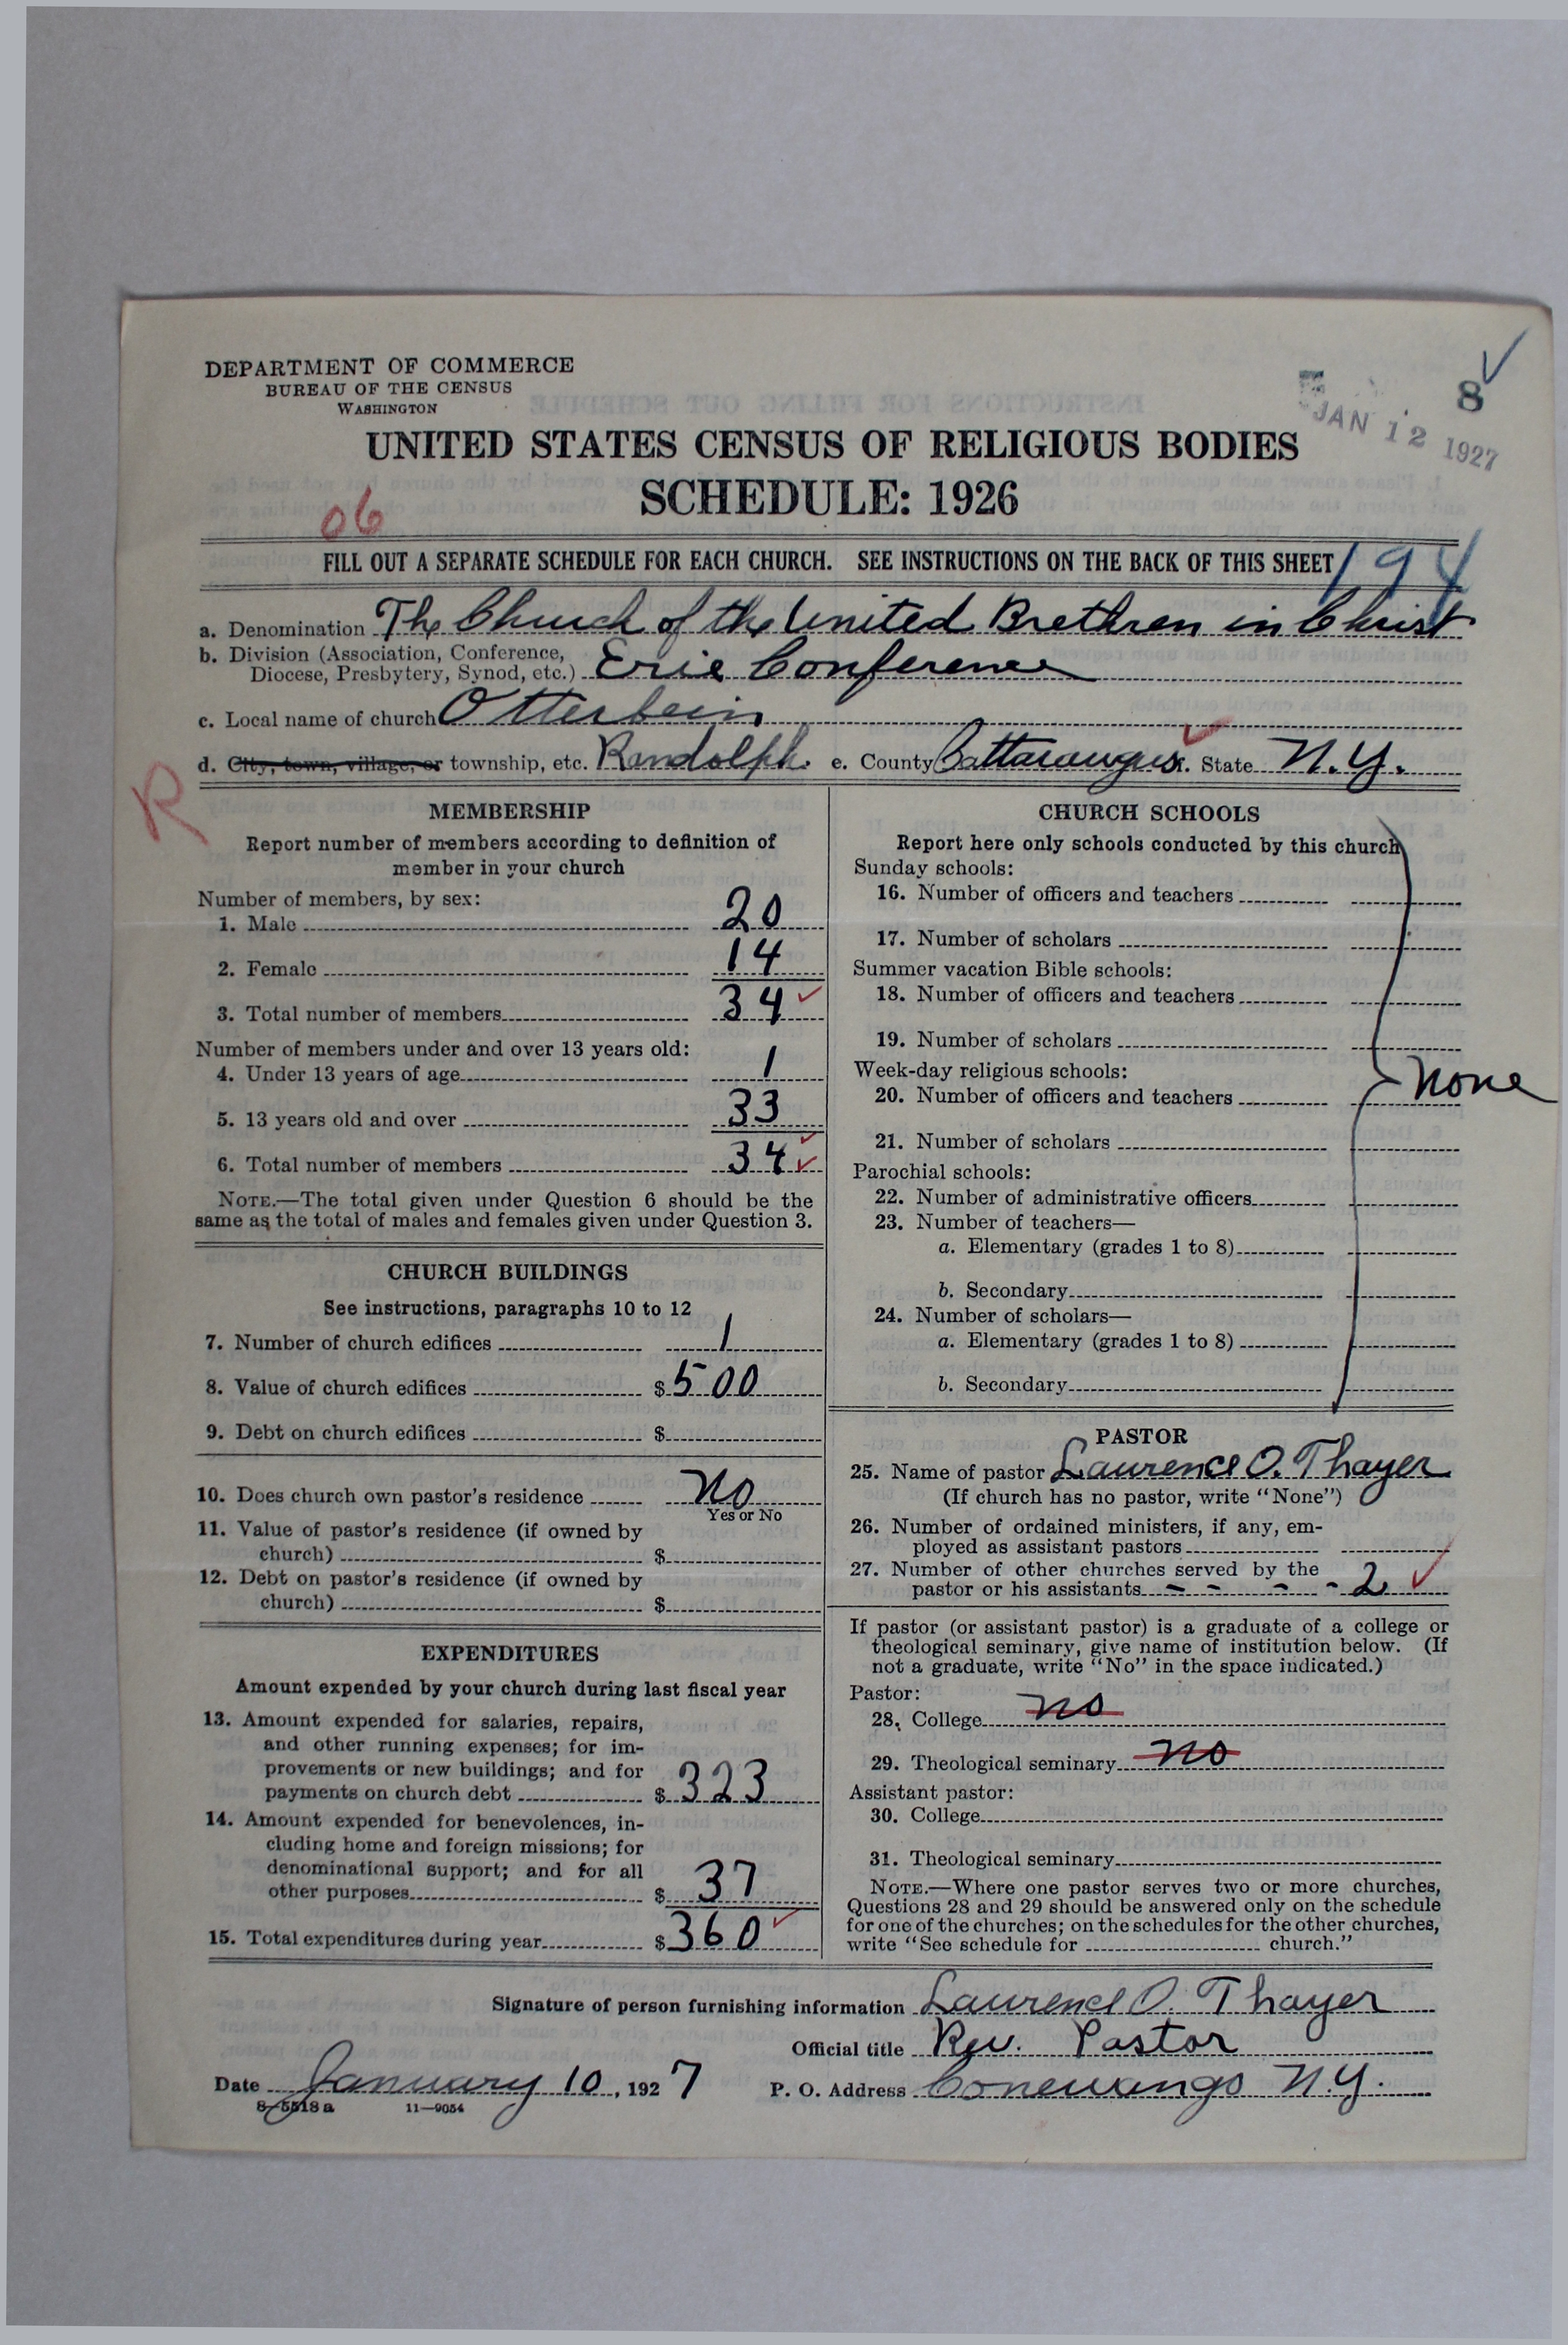 DEPARTMENT OF COMMERCE
BUREAU OF THE CENSUS
WASHINGTON
8
JAN 12 1927
UNITED STATES CENSUS OF RELIGIOUS BODIES
SCHEDULE: 1926
06
FILL OUT A SEPARATE SCHEDULE FOR EACH CHURCH. SEE INSTRUCTIONS ON THE BACK OF THIS SHEET
194
a. Denomination The Church of the United Brethren in Christ
b. Division (Association, Conference,
Diocese, Presbytery, Synod, etc.) Erie Conference
c. Local name of church Otterbein
d. City, town, village, or township, etc. Randolph e. County Cattaraugus. State N.Y.
R
MEMBERSHIP
Report number of members according to definition of
member in your church
Number of members, by sex:
1. Male 20
2. Female 14
3. Total number of members 34
Number of members under and over 13 years old:
4. Under 13 years of age 1
5. 13 years old and over 33
6. Total number of members 34
NOTE.—The total given under Question 6 should be the
same as the total of males and females given under Question 3.
CHURCH BUILDINGS
See instructions, paragraphs 10 to 12
7. Number of church edifices 1
8. Value of church edifices $500
9. Debt on church edifices $
10. Does church own pastor's residence No
Yes or No
11. Value of pastor's residence (if owned by
church) $
12. Debt on pastor's residence (if owned by
church) $
EXPENDITURES
Amount expended by your church during last fiscal year
13. Amount expended for salaries, repairs,
and other running expenses; for im-
provements or new buildings; and for
payments on church debt $323
14. Amount expended for benevolences, in-
cluding home and foreign missions; for
denominational support; and for all
other purposes $37
15. Total expenditures during year $360
CHURCH SCHOOLS
Report here only schools conducted by this church
Sunday schools:
16. Number of officers and teachers
17. Number of scholars
Summer vacation Bible schools:
18. Number of officers and teachers
19. Number of scholars
Week-day religious schools:
none
20. Number of officers and teachers
21. Number of scholars
Parochial schools:
22. Number of administrative officers
23. Number of teachers—
a. Elementary (grades 1 to 8)
b. Secondary
24. Number of scholars—
a. Elementary (grades 1 to 8)
b. Secondary
PASTOR
25. Name of pastor Laurence O. Thayer
(If church has no pastor, write "None")
26. Number of ordained ministers, if any, em-
ployed as assistant pastors
27. Number of other churches served by the
pastor or his assistants - - - - 2
If pastor (or assistant pastor) is a graduate of a college or
theological seminary, give name of institution below. (If
not a graduate, write "No" in the space indicated.)
Pastor:
28. College no
29. Theological seminary no
Assistant pastor:
30. College
31. Theological seminary
NOTE.—Where one pastor serves two or more churches,
Questions 28 and 29 should be answered only on the schedule
for one of the churches; on the schedules for the other churches,
write "See schedule for church."
Signature of person furnishing information Laurence O. Thayer
Official title Rev. Pastor
Date January 10, 1927 P. O. Address Conewango N.Y.
8-5518a 11—9054